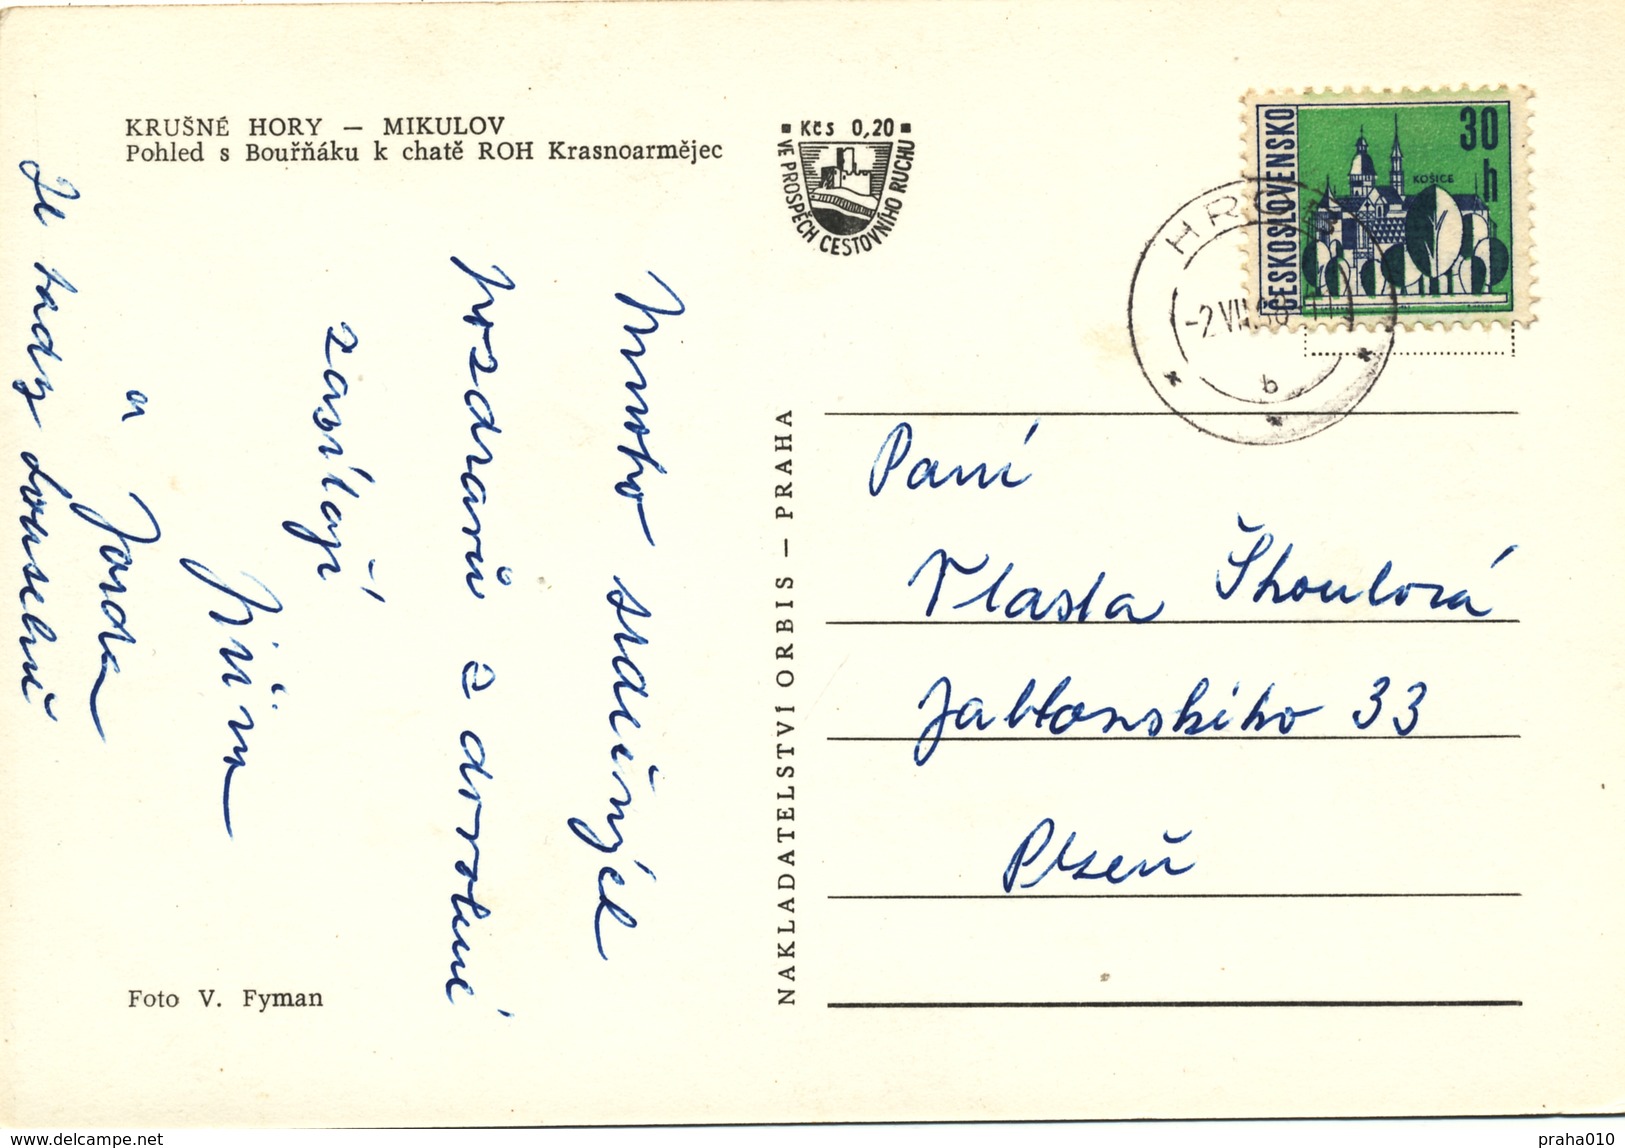 KRUŠNÉ HORY – MIKULOV
Pohled s Bouřňáku k chatě ROH Krasnoarmějec
Kčs 0,20
VE PROSPĚCH CESTOVNÍHO RUCHU
ČESKOSLOVENSKO
30
h
KOŠICE
HRO
-2.VII.68
b
Mnoho srdečných
pozdravů z dovolené
zasílají
Jiřina
a Jarda
Je tady
NAKLADATELSTVÍ ORBIS – PRAHA
Paní
Vlasta Škoulová
Jablonského 33
Plzeň
Foto V. Fyman
praha010